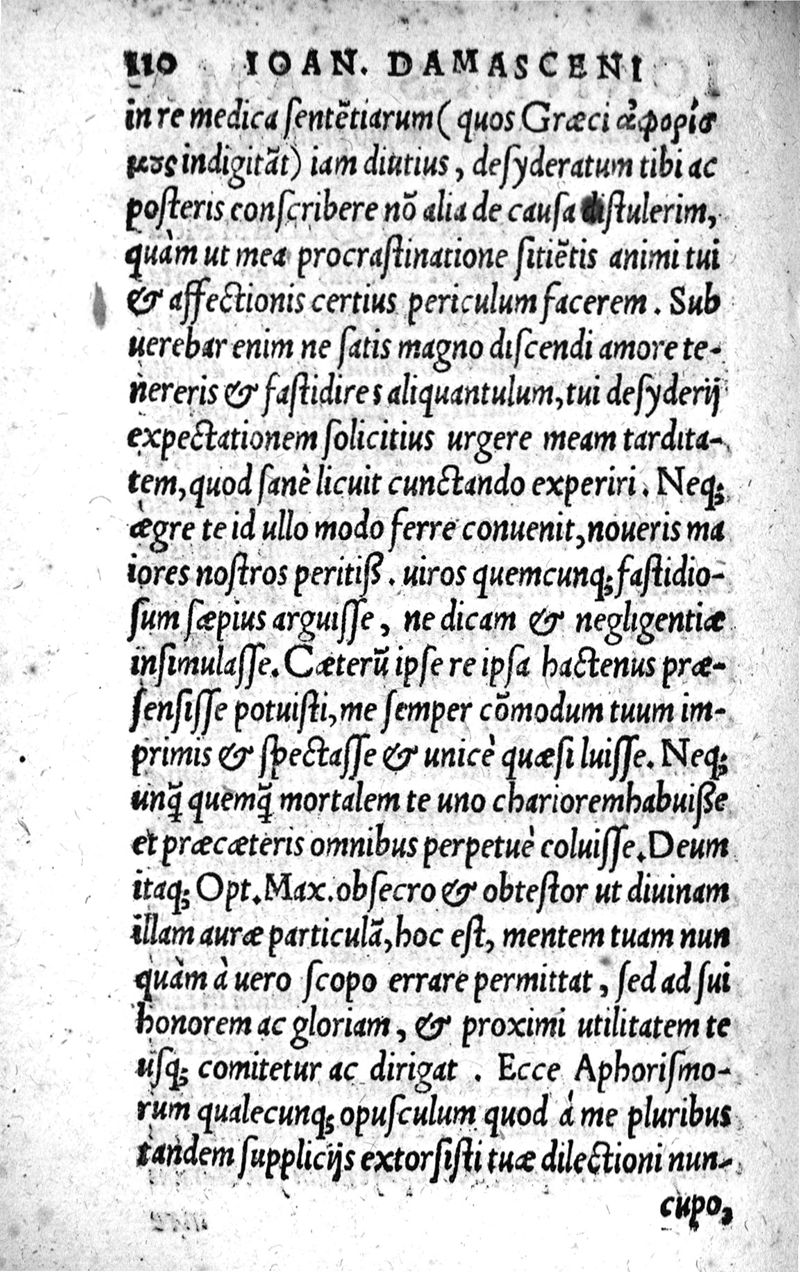 110 IOAN. DAMASCENI
in re medica ſentẽtiarum ( quos Græci ἀφορίσ
μους indigitãt) iam diutius , deſyderatum tibi ac
poſteris conſcribere nõ alia de cauſa diſtulerim,
quàm ut mea procraſtinatione ſitiẽtis animi tui
& affectionis certius periculum facerem . Sub
uerebar enim ne ſatis magno diſcendi amore te-
nereris & faſtidires aliquantulum, tui deſyderij
expectationem ſolicitius urgere meam tardita-
tem, quod ſanè licuit cunctando experiri . Neq;
ægre te id ullo modo ferre conuenit, noueris ma
iores noſtros peritiß . uiros quemcunq; faſtidio-
ſum ſæpius arguiſſe , ne dicam & negligentiæ
inſimulaſſe. Cæterũ ipſe re ipſa hactenus præ-
ſenſiſſe potuiſti, me ſemper cõmodum tuum im-
primis & ſpectaſſe & unicè quæſi luiſſe. Neq;
unq̃ quemq̃ mortalem te uno chariorem habuiße
et præ cæteris omnibus perpetuè coluiſſe. Deum
itaq; Opt. Max. obſecro & obteſtor ut diuinam
illam auræ particulã, hoc eſt, mentem tuam nun
quàm à uero ſcopo errare permittat , ſed ad ſui
honorem ac gloriam , & proximi utilitatem te
uſq; comitetur ac dirigat . Ecce Aphoriſmo-
rum qualecunq; opuſculum quod à me pluribus
tandem ſupplicijs extorſiſti tuæ dilectioni nun-
cupo,